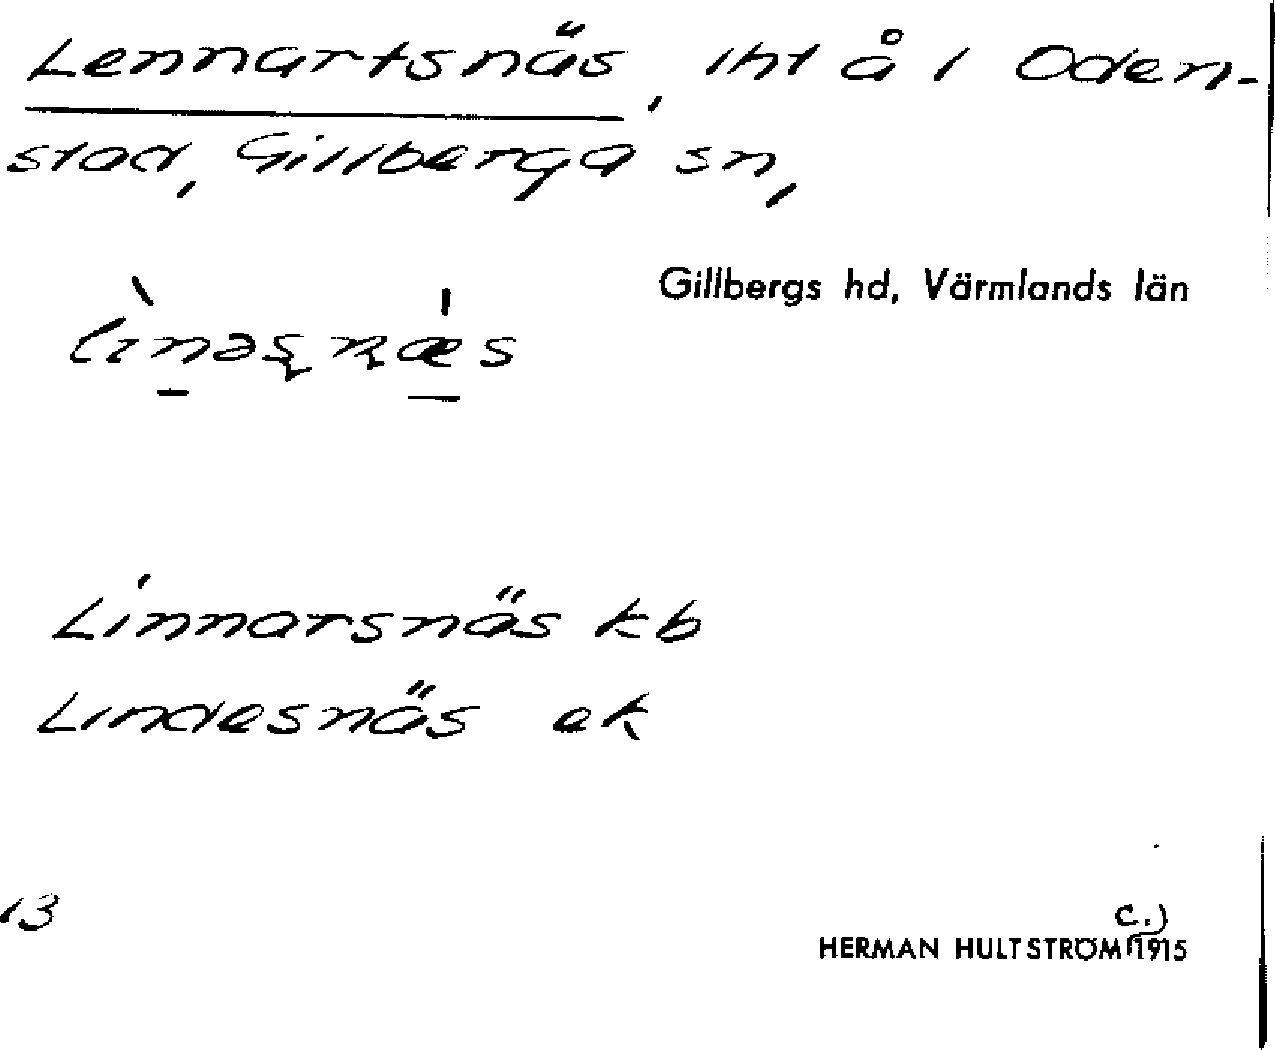 Lennartsnäs, lht å 1 Oden-
stad, Gillberga sn,
Gillbergs hd, Värmlands län
Linnarsnäs kb
Lindesnäs ek
13
c.)
HERMAN HULTSTRÖM 1915